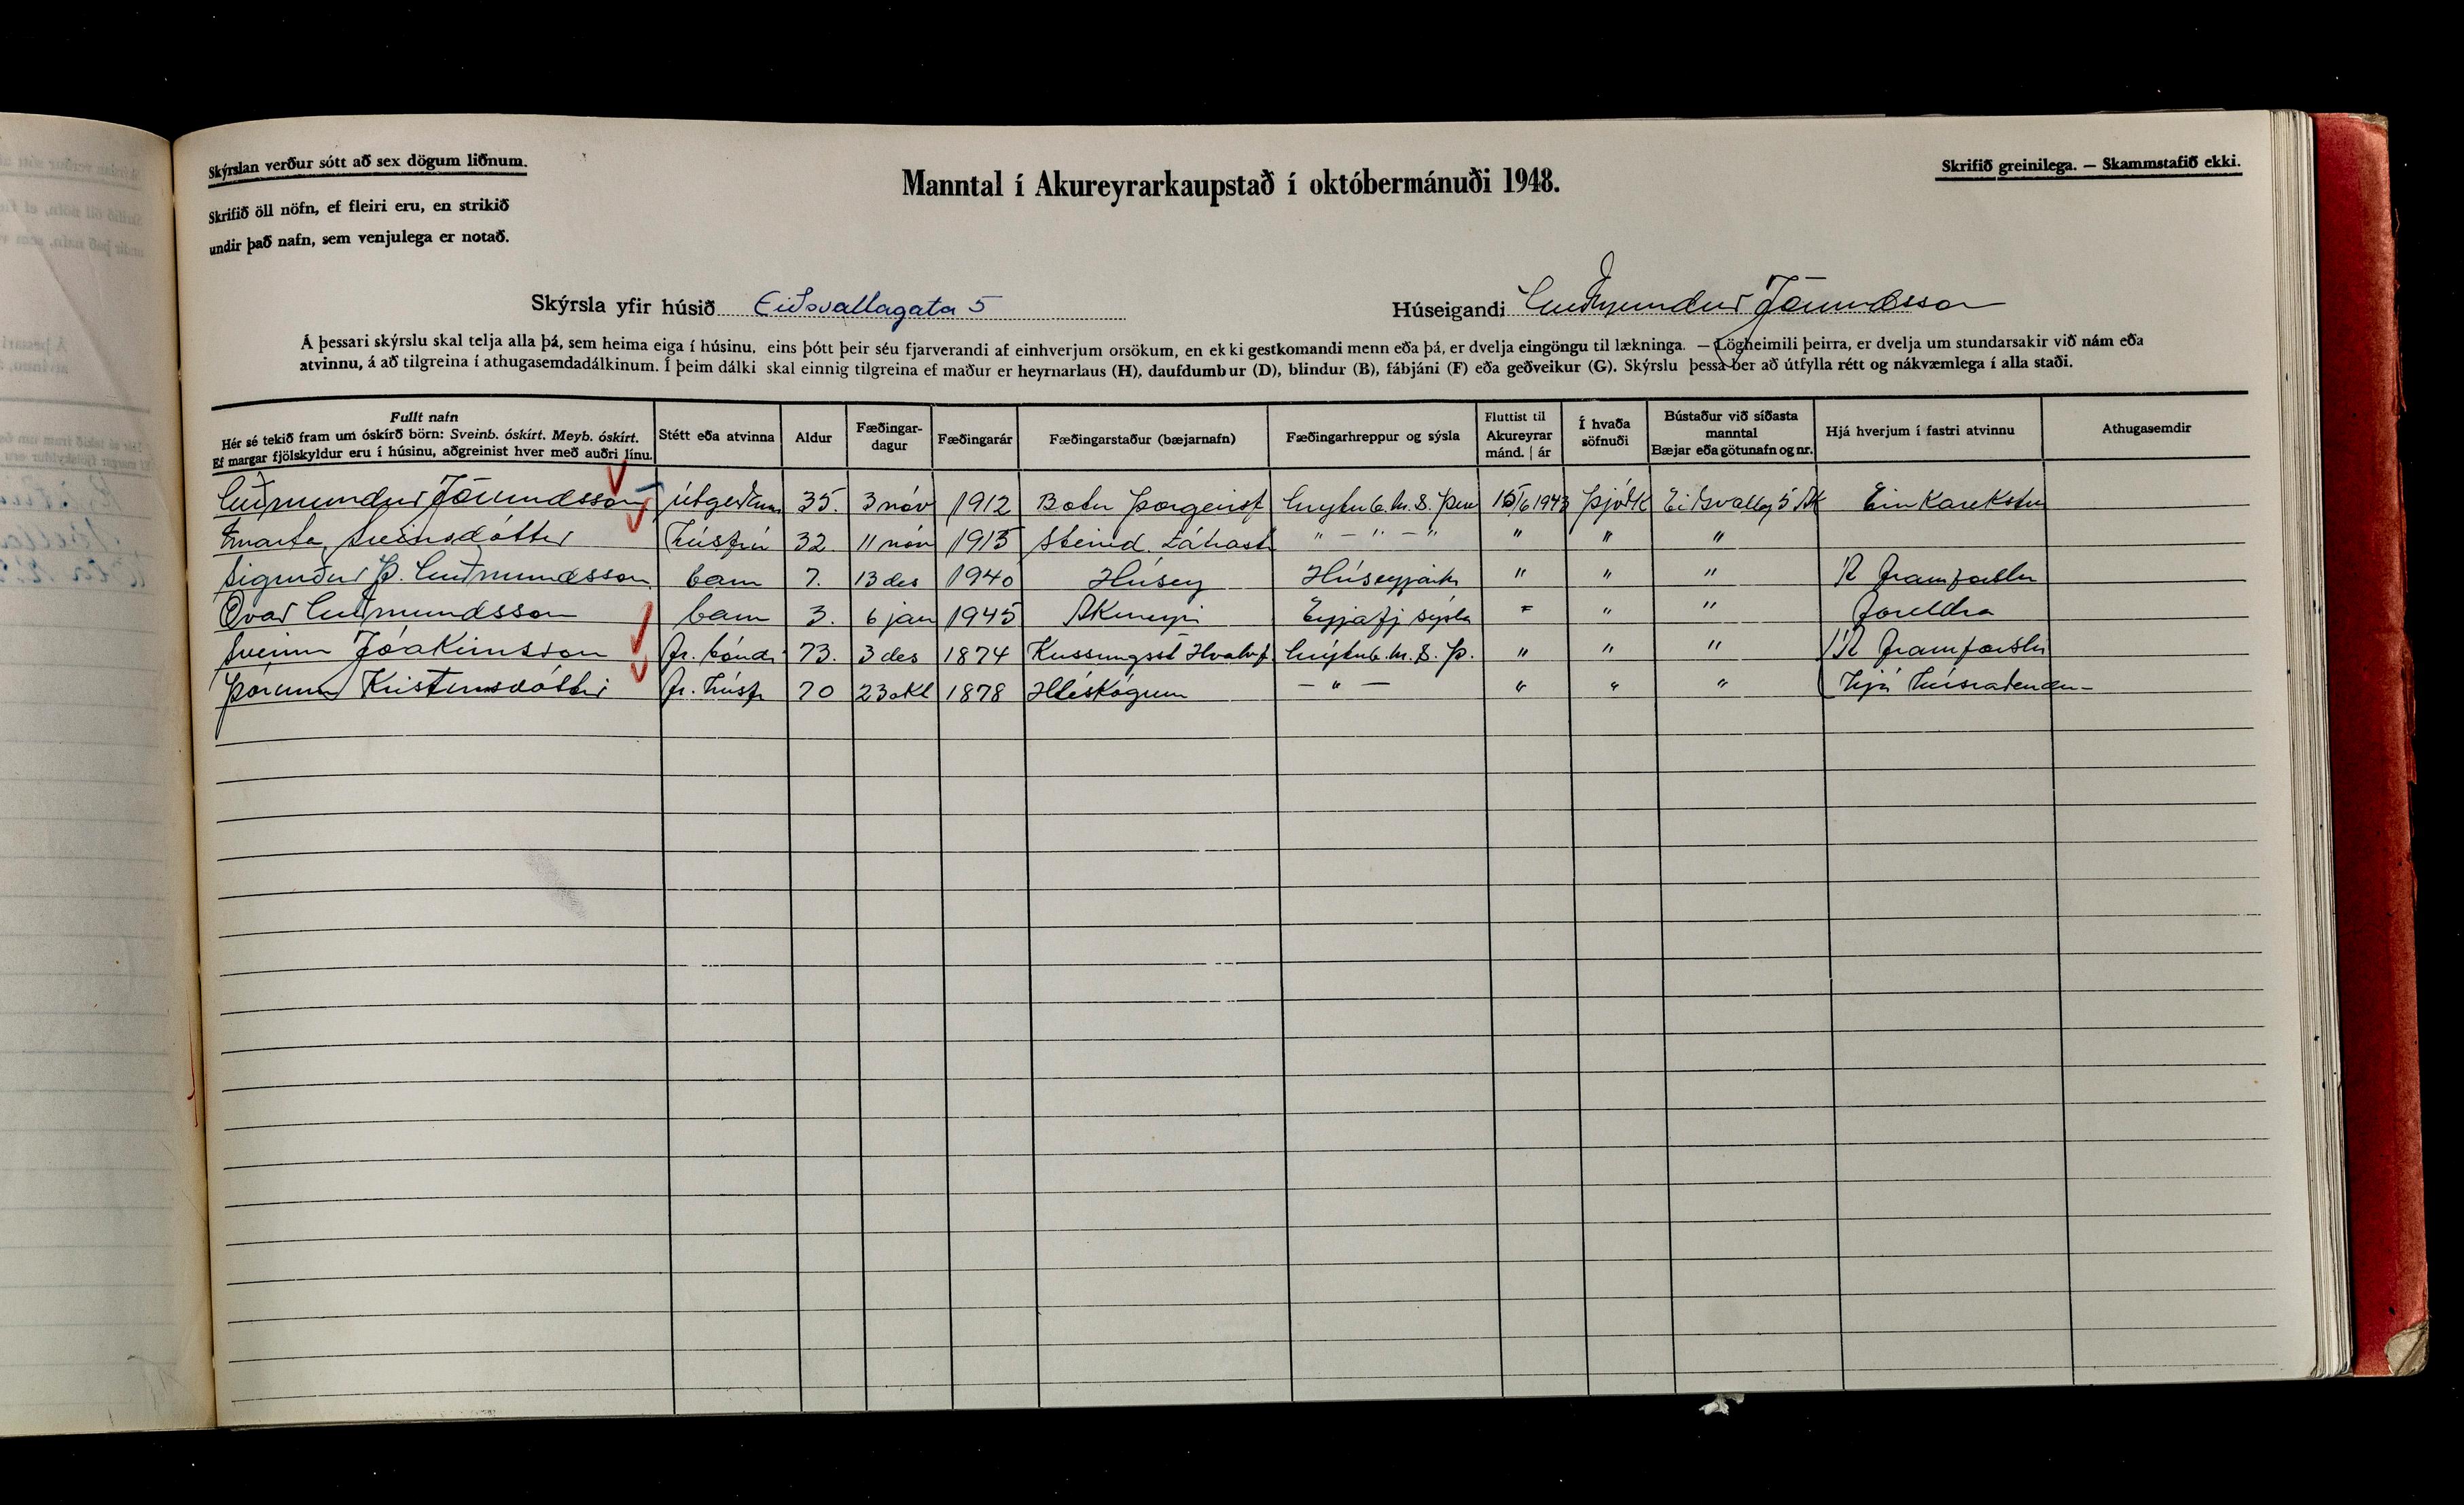 Skýrslan verður sótt að sex dögum liðnum.
Skrifið öll nöfn, ef fleiri eru, en strikið
undir það nafn, sem venjulega er notað.
Manntal í Akureyrarkaupstað í októbermánuði 1948.
Skrifið greinilega. — Skammstafið ekki.
Skýrsla yfir húsið Eiðsvallagata 5
Húseigandi Guðmundur Jörundsson
Á þessari skýrslu skal telja alla þá, sem heima eiga í húsinu, eins þótt þeir séu fjarverandi af einhverjum orsökum, en ekki gestkomandi menn eða þá, er dvelja eingöngu til lækninga. — Lögheimili þeirra, er dvelja um stundarsakir við nám eða
atvinnu, á að tilgreina í athugasemdadálkinum. Í þeim dálki skal einnig tilgreina ef maður er heyrnarlaus (H), daufdumbur (D), blindur (B), fábjáni (F) eða geðveikur (G). Skýrslu þessa ber að útfylla rétt og nákvæmlega í alla staði.
Fullt nafn
Hér sé tekið fram um óskírð börn: Sveinb. óskírt. Meyb. óskírt.
Ef margar fjölskyldur eru í húsinu, aðgreinist hver með auðri línu.
Stétt eða atvinna
Aldur
Fæðingar-
dagur
Fæðingarár
Fæðingarstaður (bæjarnafn)
Fæðingarhreppur og sýsla
Fluttist til
Akureyrar
mánd. | ár
Í hvaða
söfnuði
Bústaður við síðasta
manntal
Bæjar eða götunafn og nr.
Hjá hverjum í fastri atvinnu
Athugasemdir
Guðmundur Jörundsson útgerðarm 35. 3 nóv 1912 Botn Þorgeirsf 15/6 1943 Þjóðk Eiðsvallag 5 Ak
Marta Sveinsdóttir Húsfrú 32. 11 nóv 1915 " - " - " " " "
Sigurður Þ. Guðmundsson barn 7. 13 des 1940 Húsey " " " Á framfærslu
Örvar Guðmundsson barn 3. 6 jan 1945 Akureyri Eyjafj sýsla " " " foreldra
Sveinn Jóakimsson fr. bóndi 73. 3 des 1874 Kussungsst Hvalvf " " " Á framfærslu
Þórunn Kristinsdóttir fr. húsfr 70 23 okt 1878 Hléskógum - " - " " " Hjá húsráðendum